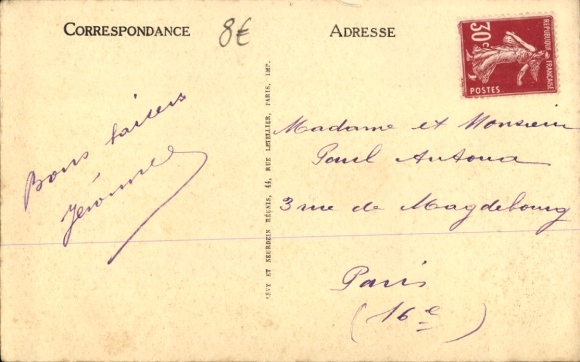 CORRESPONDANCE
8€
ADRESSE
30c
RÉPUBLIQUE FRANÇAISE
POSTES
Bons baisers
Jérôme
LÉVY ET NEURDEIN RÉUNIS, 44, RUE LETELLIER, PARIS, IMP.
Madame et Monsieur
Paul Antona
3 rue de Magdebourg
Paris
(16e)